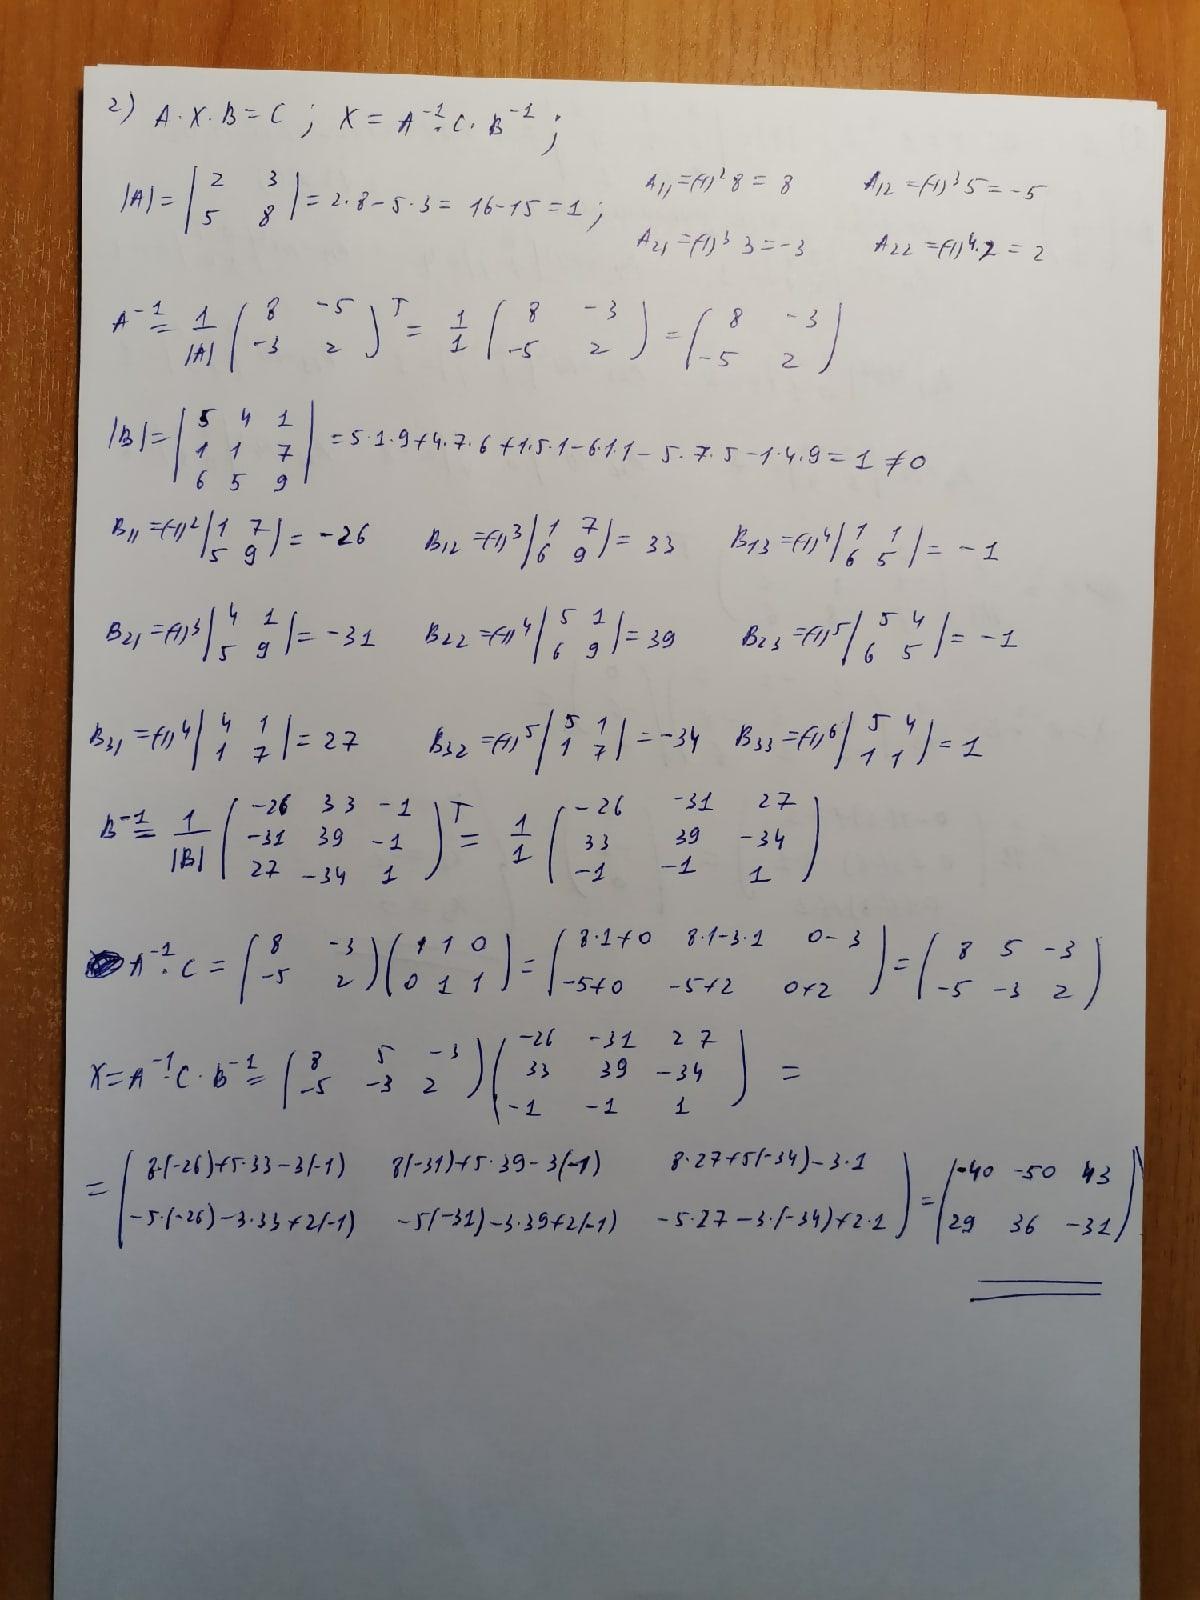 2) A·X·B=C ; X= A⁻¹·C·B⁻¹ ;
|A|= |2 3; 5 8| = 2·8-5·3= 16-15=1 ; A₁₁=(-1)²8=8 A₁₂=(-1)³5=-5
A₂₁=(-1)³3=-3 A₂₂=(-1)⁴·2=2
A⁻¹= 1/|A| (8 -5; -3 2)ᵀ= 1/1 (8 -3; -5 2) = (8 -3; -5 2)
|B|= |5 4 1; 1 1 7; 6 5 9| =5·1·9+4·7·6+1·5·1-6·1·1-5·7·5-1·4·9=1≠0
B₁₁=(-1)²|1 7; 5 9|=-26 B₁₂=(-1)³|1 7; 6 9|=33 B₁₃=(-1)⁴|1 1; 6 5|=-1
B₂₁=(-1)³|4 1; 5 9|=-31 B₂₂=(-1)⁴|5 1; 6 9|=39 B₂₃=(-1)⁵|5 4; 6 5|=-1
B₃₁=(-1)⁴|4 1; 1 7|=27 B₃₂=(-1)⁵|5 1; 1 7|=-34 B₃₃=(-1)⁶|5 4; 1 1|=1
B⁻¹= 1/|B| (-26 33 -1; -31 39 -1; 27 -34 1)ᵀ= 1/1 (-26 -31 27; 33 39 -34; -1 -1 1)
A⁻¹·C= (8 -3; -5 2)(1 1 0; 0 1 1)= (8·1+0 8·1-3·1 0-3; -5+0 -5+2 0+2)= (8 5 -3; -5 -3 2)
X=A⁻¹·C·B⁻¹= (8 5 -3; -5 -3 2)(-26 -31 27; 33 39 -34; -1 -1 1) =
= (8·(-26)+5·33-3(-1) 8(-31)+5·39-3(-1) 8·27+5(-34)-3·1; -5·(-26)-3·33+2(-1) -5(-31)-3·39+2(-1) -5·27-3·(-34)+2·1)= (-40 -50 43; 29 36 -31)